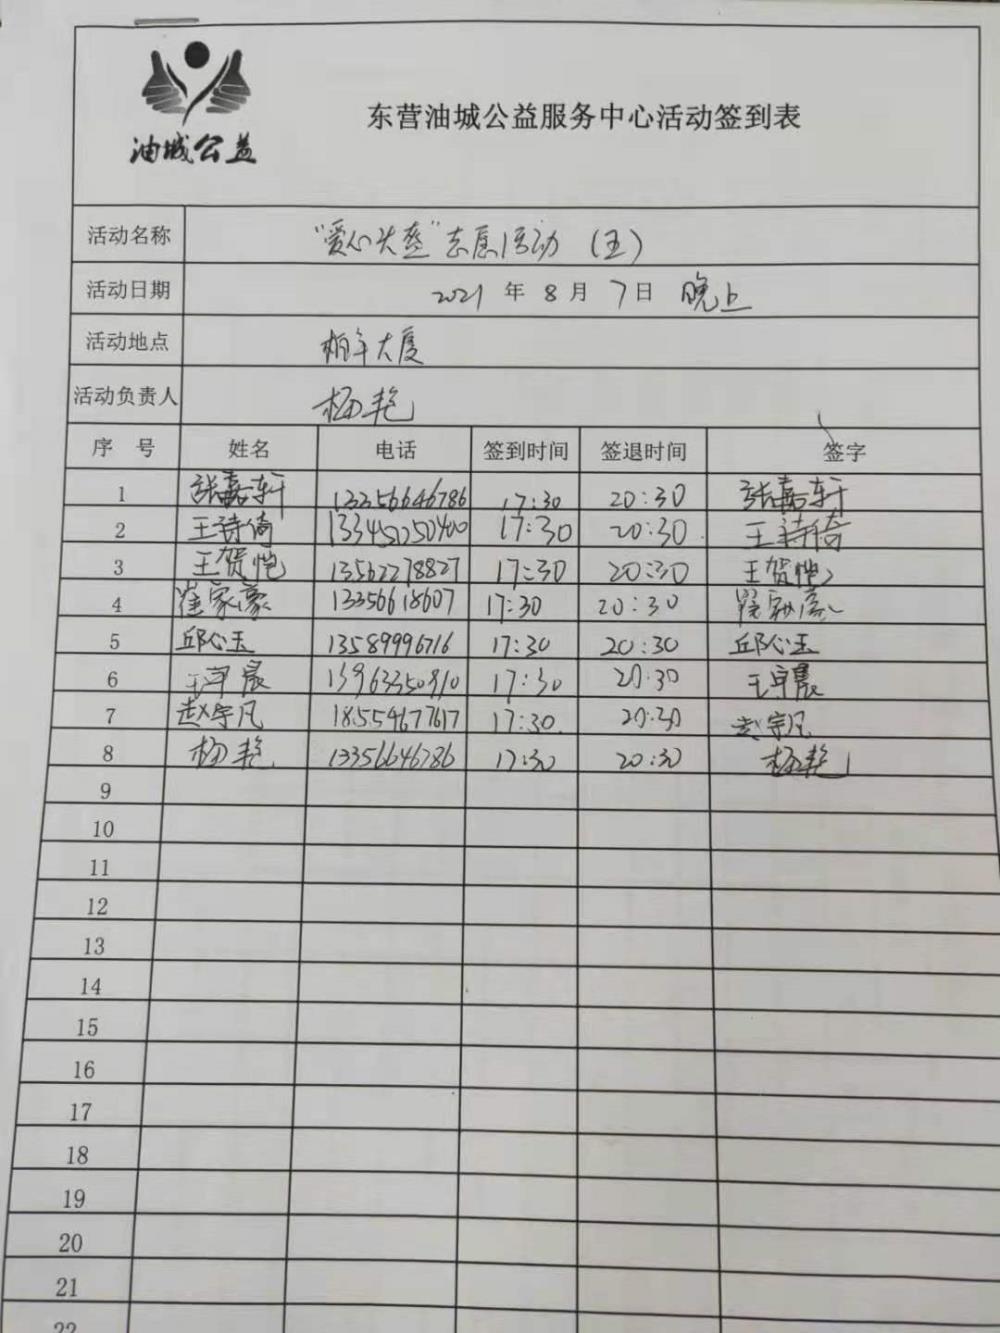 油城公益
东营油城公益服务中心活动签到表
活动名称 "爱心头盔"志愿活动 (五)
活动日期 2021 年 8 月 7 日 晚上
活动地点 大厦
活动负责人 杨艳
序 号 姓名 电话 签到时间 签退时间 签字
1 张嘉轩 13356646786 17:30 20:30 张嘉轩
2 王诗倚 17:30 20:30 王诗倚
3 王贺恺 13562278827 17:30 20:30 王贺恺
4 崔家豪 13356618607 17:30 20:30
5 邱心玉 13589996716 17:30 20:30 邱心玉
6 王卓晨 17:30 20:30 王卓晨
7 赵宇凡 18554677617 17:30 20:30 赵宇凡
8 杨艳 13356646786 17:30 20:30 杨艳
9
10
11
12
13
14
15
16
17
18
19
20
21
22